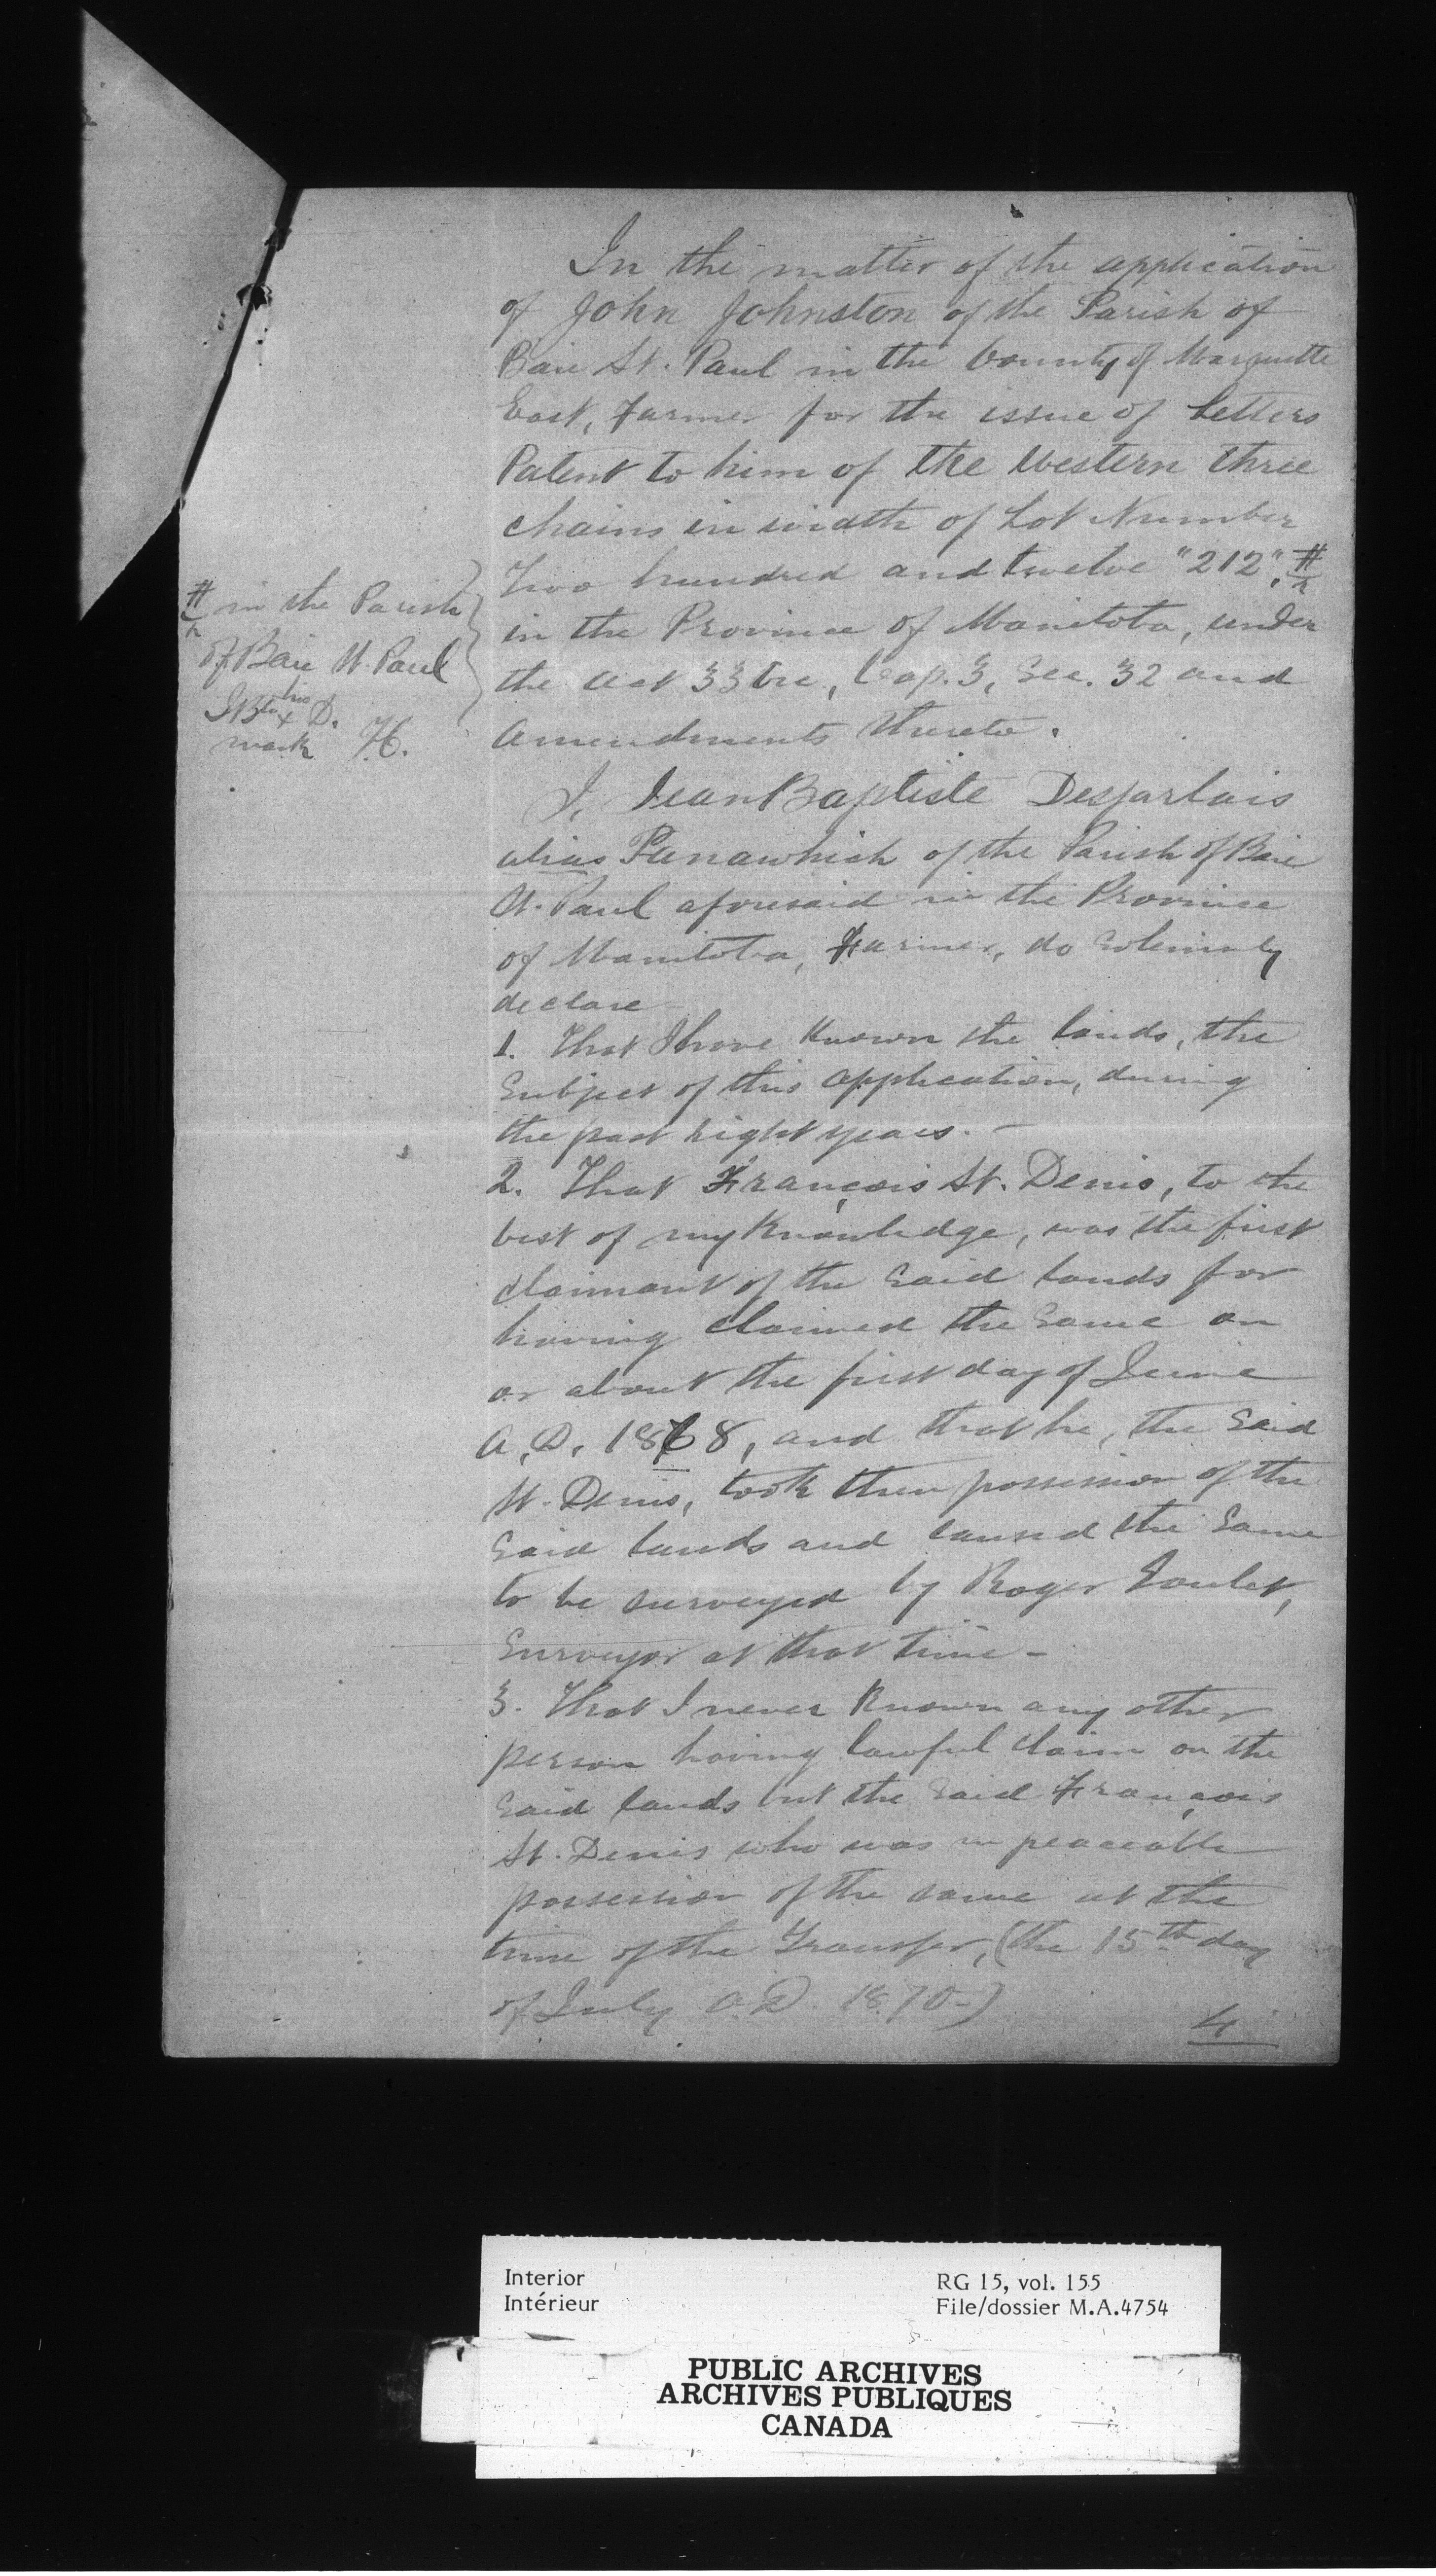 In the matter of the application
of John Johnston of the Parish of
Baie St. Paul in the County of Marquette
East, Farmer for the issue of Letters
Patent to him of the Western three
chains in width of Lot Number
Two hundred and twelve "212". #
in the Province of Manitoba, under
the Act 33 Vic, Cap. 3, Sec. 32 and
Amendments thereto.
# in the Parish
of Baie St. Paul
his
JBte x D.
mark H.
I, Jean Baptiste Desjarlais
alias Panawhich of the Parish of Baie
St. Paul aforesaid in the Province
of Manitoba, Farmer, do solemnly
declare
1. That I have known the lands, the
Subject of this application, during
the past eight years. -
2. That François St. Denis, to the
best of my knowledge, was the first
claimant of the said lands for
having claimed the same on
or about the first day of June
A.D. 1868, and that he, the said
St. Denis, took then possession of the
said lands and caused the same
to be surveyed by Roger Goulet,
Surveyor at that time -
3. That I never known any other
person having lawful claim on the
said lands but the said François
St. Denis who was in peaceable
possession of the same at the
time of the Transfer, (the 15th day
of July A.D. 1870-)
4
Interior
Intérieur
RG 15, vol. 155
File/dossier M.A.4754
PUBLIC ARCHIVES
ARCHIVES PUBLIQUES
CANADA